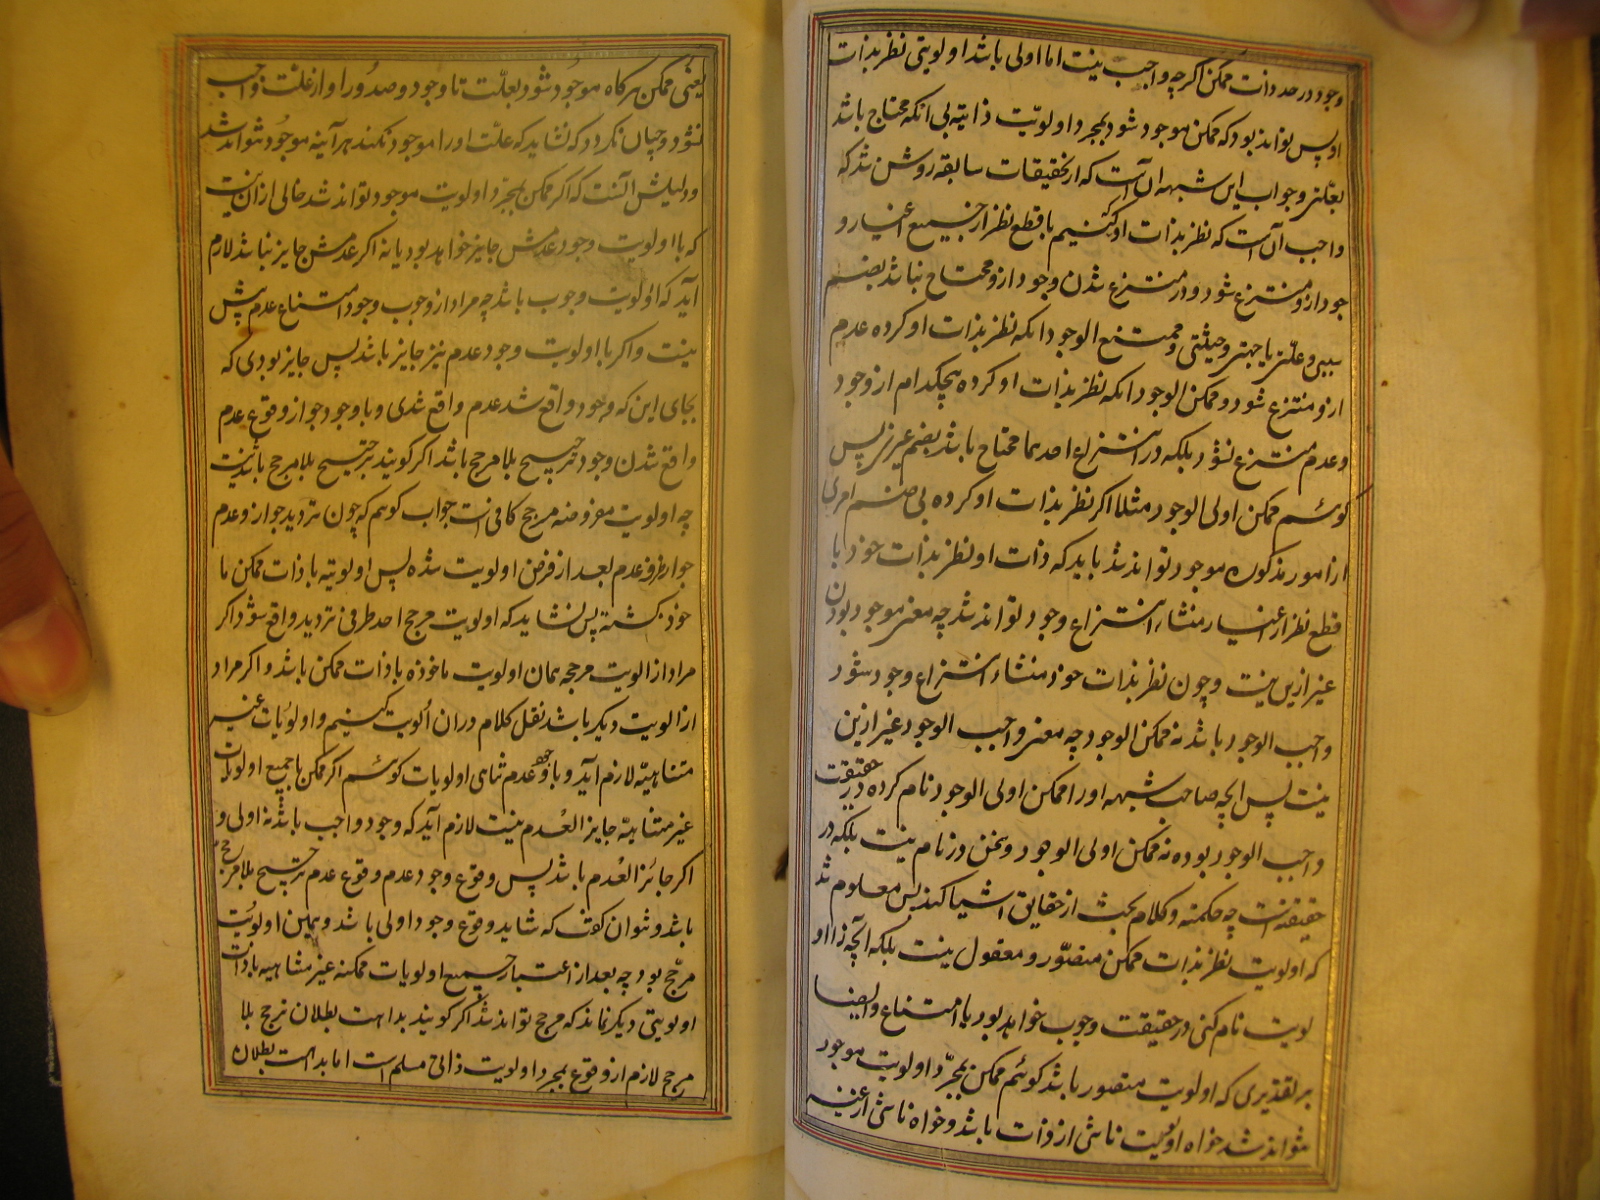 وجود در حد ذات ممکن اکر چه واجب نیست اما اولی باشد اولویتی نظر بذات
او پس تواند بود که ممکن موجود شود بمجرد اولویّت ذاتیه بی انکه محتاج باشد
بعلّتی و جواب این شبهه آن است که از تحقیقات سابقه روشن شد که
واجب آن است که نظر بذات او کنیم با قطع نظر از جمیع اغیار و
جود ازو منتزع شود و در منتزع شدن وجود ازو محتاج نباشد بضم
سببی و علّتی یا جهتی و حیثیتی و ممتنع الوجود انکه نظر بذات او کرده عدم
ازو منتزع شود و ممکن الوجود انکه نظر بذات او کرده هیچکدام از وجود
و عدم منتزع نشود بلکه در انتزاع احدهما محتاج باشد بضم غیری پس
کوئیم ممکن اولی الوجود مثلا اکر نظر بذات او کرده بی ضم امری
از امور مذکوره موجود تواند شد باید که ذات او نظر بذات خود با
قطع نظر از اغیار منشاء انتزاع وجود تواند شد چه معنی موجود بودن
غیر ازین نیست و چون نظر بذات خود منشاء انتزاع وجود شود
واجب الوجود باشد نه ممکن الوجود چه معنی واجب الوجود غیر ازین
نیست پس انچه صاحب شبهه او را ممکن اولی الوجود نام کرده در حقیقت
واجب الوجود بوده نه ممکن اولی الوجود و سخن در نام نیست بلکه در
حقیقت است چه حکمت و کلام بحث از حقایق اشیا کند پس معلوم شد
که اولویت نظر بذات ممکن متصوّر و معقول نیست بلکه انچه ذا او
لویت نام کنی در حقیقت وجوب خواهد بود یا امتناع و ایضا
بر تقدیری که اولویت متصور باشد کوئیم ممکن بمجرّد اولویت موجود
نتواند شد خواه اولویت ناشی از ذات باشد و خواه ناشی از غیر
یعنی ممکن هرکاه موجود شود بعلّت تا وجود و صدور او از علّت واجب
نشود و چنان نکردد که نشاید که علّت او را موجود نکند هرآینه موجود نتواند شد
و دلیلش آنست که اکر ممکن بمجرّد اولویت موجود تواند شد خالی ازان نیست
که با اولویت وجود عدمش جایز خواهد بود یا نه اکر عدمش جایز نباشد لازم
آید که اولویت وجوب باشد چه مراد از وجوب وجود امتناع عدم پیش
نیست و اکر با اولویت وجود عدم نیز جایز باشد پس جایز بودی که
بجای این که وجود واقع شد عدم واقع شدی و با وجود جواز وقوع عدم
واقع شدن وجود ترجیح بلا مرجح باشد اکر کویند ترجیح بلا مرجح باشد نیست
چه اولویت مفروضه مرجح کافی است جواب کوئیم که چون تردید جواز و عدم
جواز طرف عدم بعد از فرض اولویت شده پس اولویته با ذات ممکن ما
خوذ کشته پس نشاید که اولویت مرجح احد طرفی تردید واقع شود اکر
مراد از الویت مرجحه همان اولویت ماخوذه با ذات ممکن باشد و اکر مراد
از الویت دیکر باشد نقل کلام دران الویت کنیم و اولویات غیر
متناهیّه لازم آید و با وجود عدم تناهی اولویات کوئیم اکر ممکن با جمیع اولویات
غیر متناهیّه جایز العدم نیست لازم آید که وجود واجب باشد نه اولی و
اکر جائز العدم باشد پس وقوع وجود عدم وقوع عدم ترجیح بلا مرجح
باشد و نتوان کفت که شاید وقوع وجود اولی باشد و همین اولویت
مرجّح بود چه بعد از اعتبار جمیع اولویات ممکنه غیر متناهیه با ذات
اولویتی دیکر نماند که مرجح تواند شد اکر کویند بداهت بطلان ترجح بلا
مرجح لازم از وقوع بمجرد اولویت ذاتی مسلم است اما بداهت بطلان